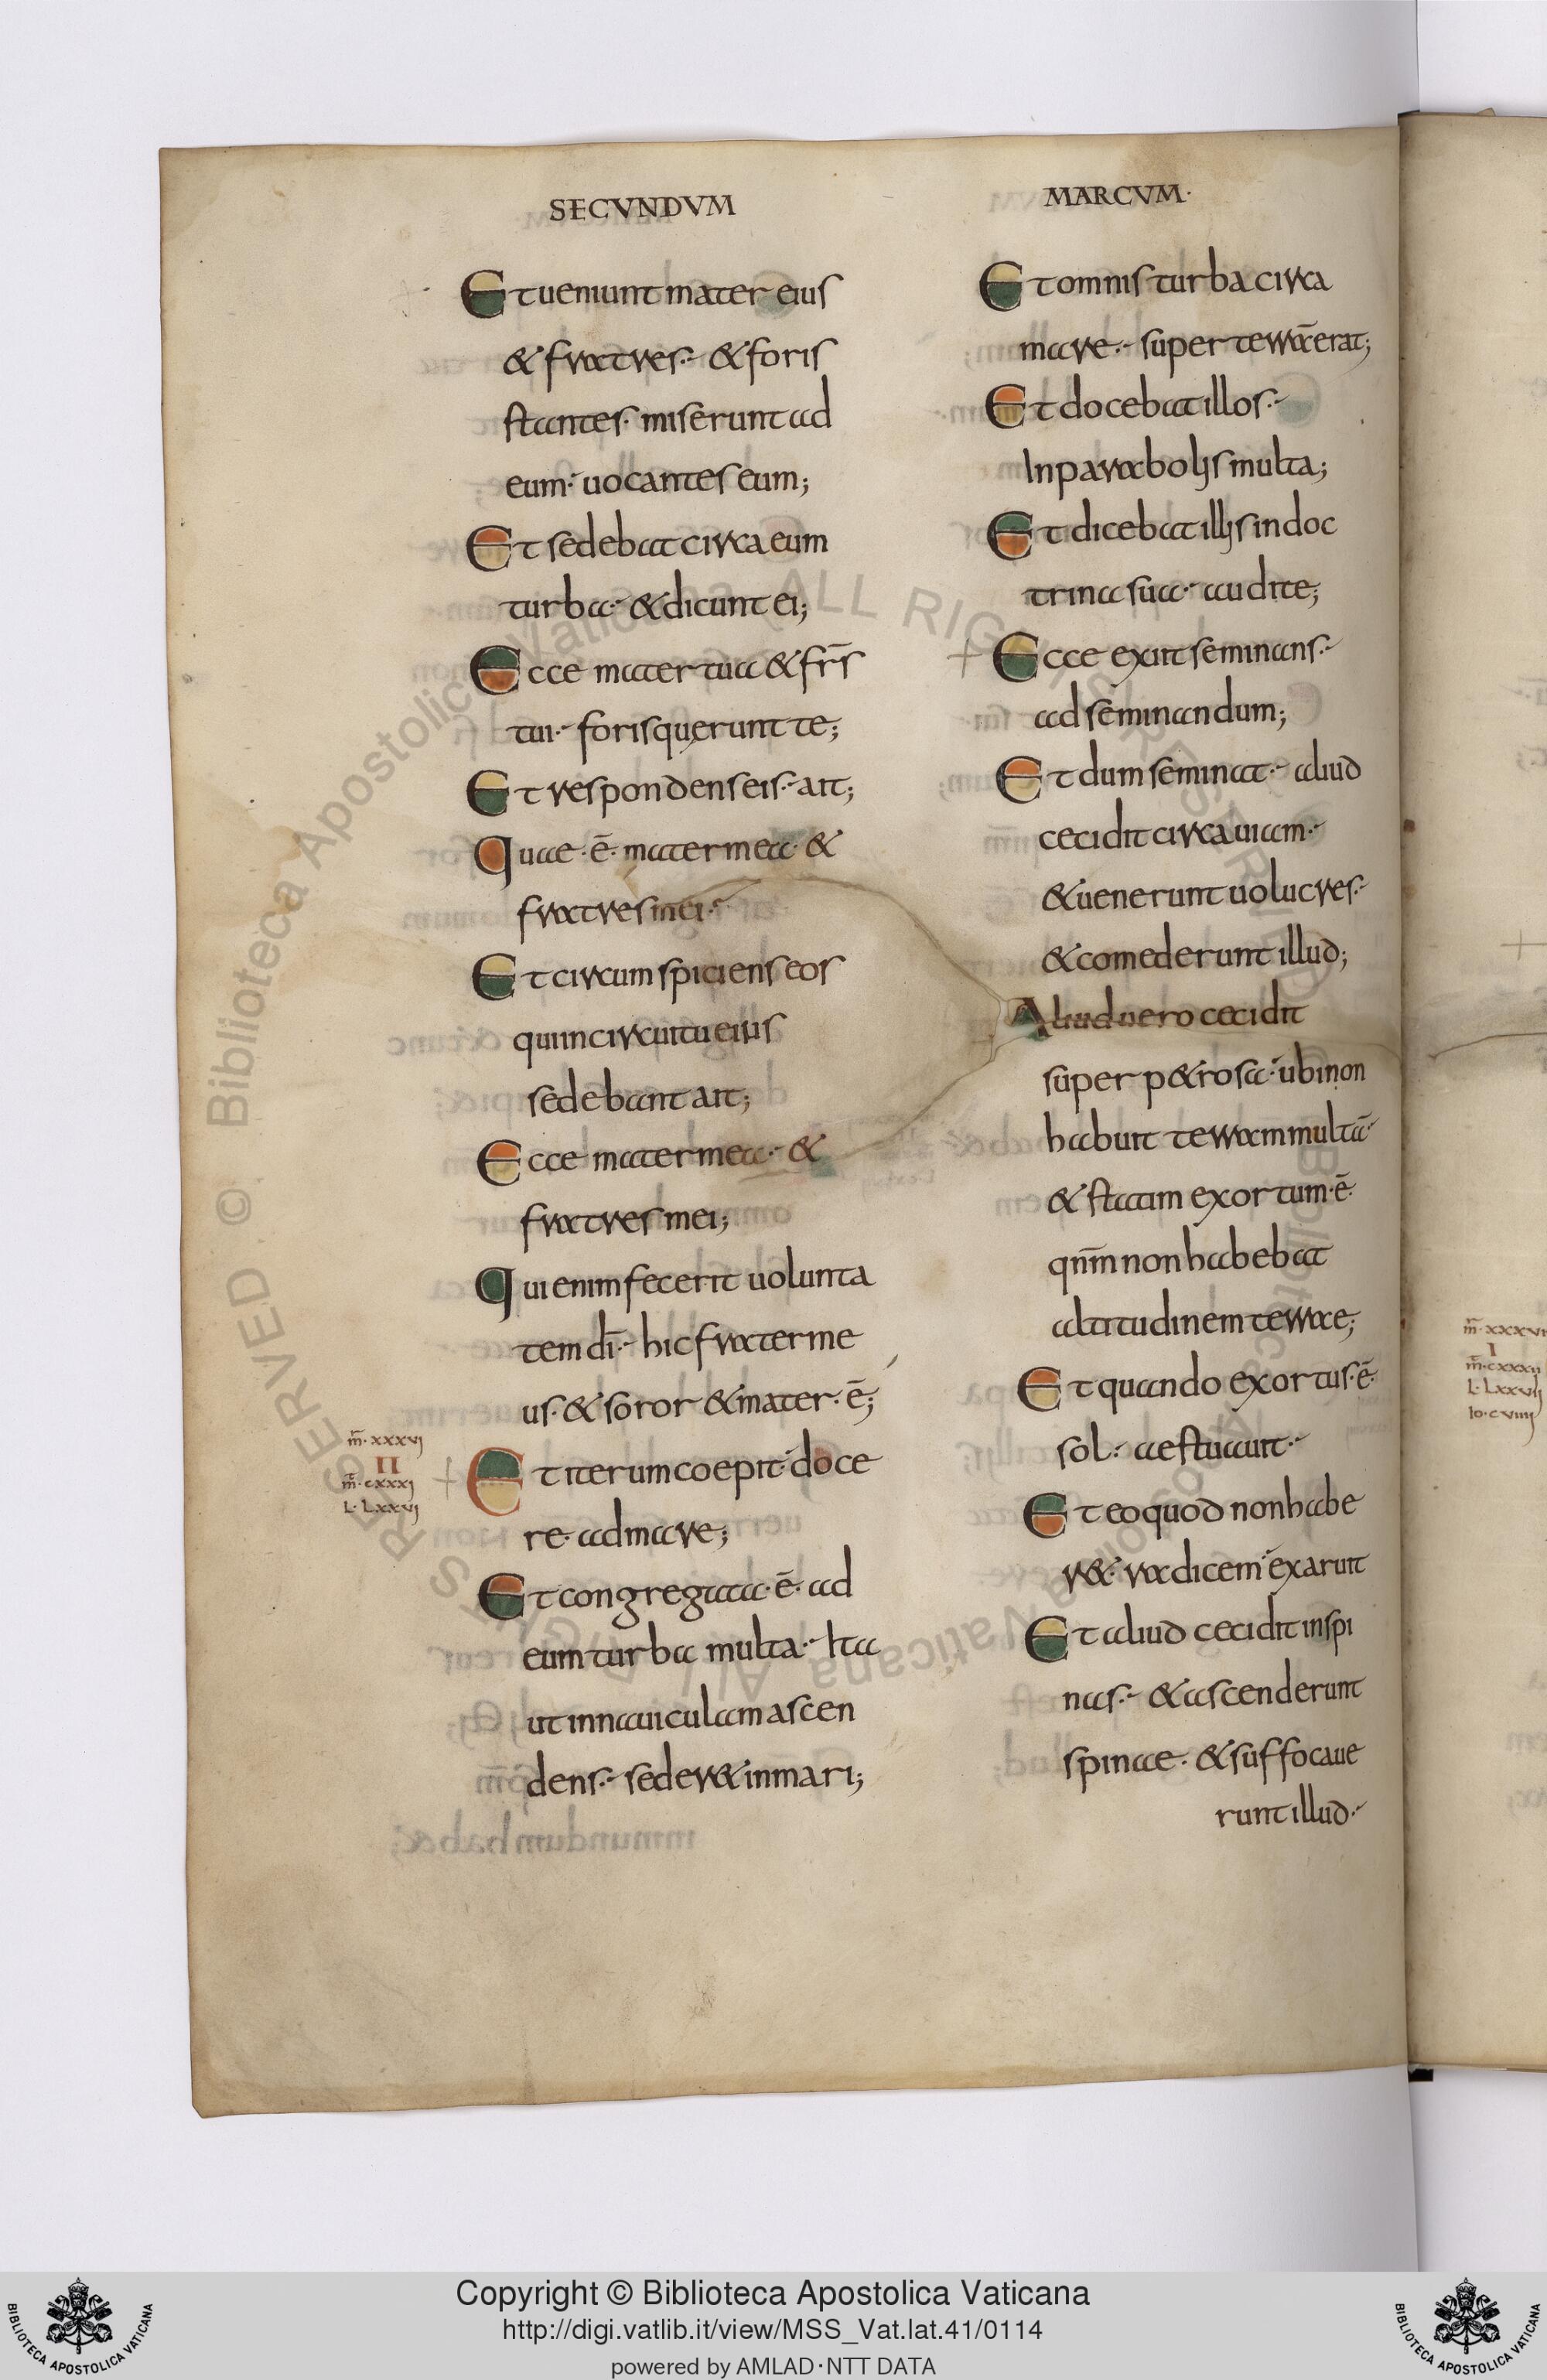 SECVNDVM
Et ueniunt mater eius
& fratres·- & foris
stantes· miserunt ad
eum·' uocantes eum;
Et sedebat circa eum
turba·- & dicunt ei;
Ecce mater tua & fr̄s
tui·- foris querunt te;
Et respondens eis·- ait;
Quae·ē· mater mea· &
fratres mei·-
Et circumspiciens eos
qui in circuitu eius
sedebant ait;
Ecce mater mea·- &
fratres mei;
Qui enim fecerit uolunta
tem dī·- hic frater me
us· & soror & mater·ē;
m̄·xxxvj
II
m̄·cxxxj
L·Lxxvj
Et iterum coepit·' doce
re· ad mare;
Et congregata·ē· ad
eum turba multa·- Ita
ut in nauiculam ascen
dens·- seder& in mari;
MARCVM·
Et omnis turba circa
mare·- super terrā erat;
Et docebat illos·-
In parabolis multa;
Et dicebat illis in doc
trina sua·' audite;
Ecce exiit seminans·-
ad seminandum;
Et dum seminat·- aliud
cecidit circa uiam·-
& uenerunt uolucres·-
& comederunt illud;
Aliud uero cecidit
super p&rosa·' ubi non
habuit terram multā·-
& statim exortum·ē·
qnm̄ non habebat
altitudinem terrae;
Et quando exortus·ē·
sol·' aestuauit·-
Et eo quod non habe
r&· radicem·' exaruit
Et aliud cecidit in spi
nas·- & ascenderunt
spinae· & suffocaue
runt illud·-
m̄·xxxvi
I
m̄·cxxxij
L·Lxxvij
Io·cviiij
Copyright © Biblioteca Apostolica Vaticana
http://digi.vatlib.it/view/MSS_Vat.lat.41/0114
powered by AMLAD·NTT DATA
BIBLIOTECA APOSTOLICA VATICANA
BIBLIOTECA APOSTOLICA VATICANA